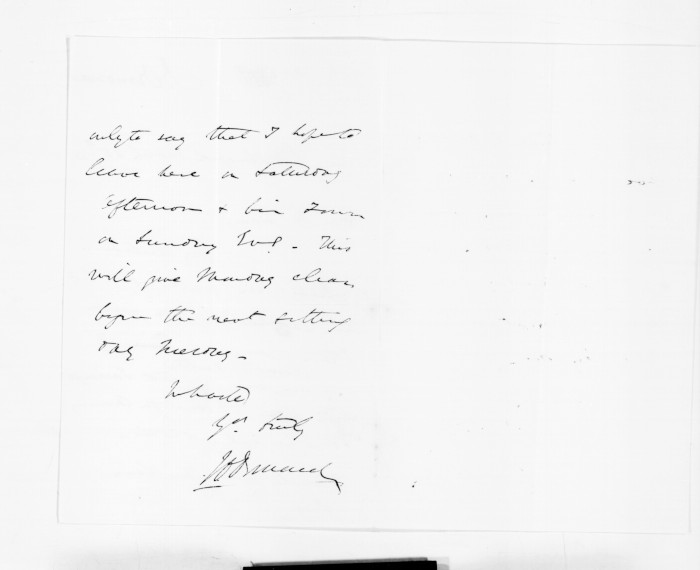 only to say that I hope to
leave here on Saturday
afternoon & be in Town
on Sunday Evg. - This
will give Monday clear
before the next sitting
day Tuesday -
In haste
Yrs truly